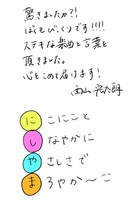 驚きましたか?!
ぼくもびっくりです!!!!
ステキな楽曲と言葉を
頂きました。
心をこめて届けます!
西山宏太朗
にこにこと
しなやかに
やさしさで
まろやか〜に